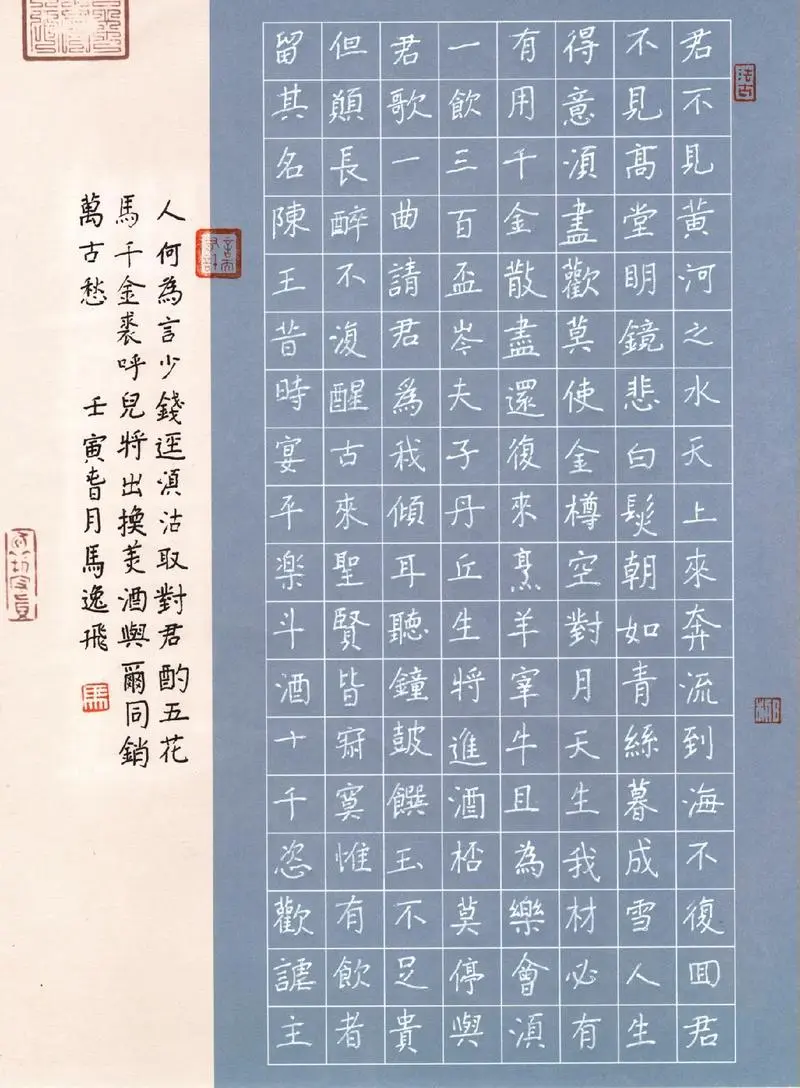 君不見黃河之水天上來奔流到海不復囬君
不見髙堂眀鏡悲白髮朝如青絲暮成雪人生
得意湏盡歡莫使金樽空對月天生我材必有
有用千金散盡還復來烹羊宰牛且為樂會湏
一飲三百盃岑夫子丹丘生將進酒桮莫停與
君歌一曲請君為我傾耳聽鐘鼓饌玉不足貴
但願長醉不復醒古來聖賢皆寂寞惟有飲者
留其名陳王昔時宴平樂斗酒十千恣歡謔主
人何為言少錢逕湏沽取對君酌五花
馬千金裘呼兒將出換美酒與爾同銷
萬古愁 壬寅春月馬逸飛
法古
馬